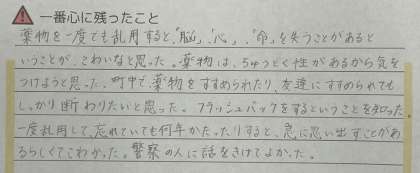 一番心に残ったこと
薬物を一度でも乱用すると、「脳」、「心」、「命」を失うことがあると
いうことが、こわいなと思った。薬物は、ちゅうどく性があるから気を
つけようと思った。町中で薬物をすすめられたり、友達にすすめられても
しっかり断わりたいと思った。フラッシュバックをするということを知った。
一度乱用して、忘れていても何年かたったりすると、急に思い出すことがあ
るらしくてこわかった。警察の人に話をきけてよかった。